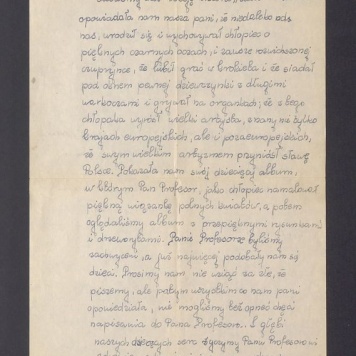 opowiadała nam nasza pani, że niedaleko od
nas, urodził się i wychowywał chłopiec o
pięknych czarnych oczach, i zawsze rozwichrzonej
czuprynce, że lubił grać w królika i że siadał
pod oknem pewnej dziewczynki z długimi
warkoczami i grywał na organkach; że z tego
chłopaka wyrósł wielki artysta, znany nie tylko
krajach europejskich, ale i pozaeuropejskich,
że swym wielkim artyzmem przyniósł sławę
Polsce. Pokazała nam swój dziecięcy album,
w którym Pan Profesor, jako chłopiec namalował
piękną wiązankę polnych kwiatów, a potem
oglądaliśmy album z przepięknymi rysunkami
i drzeworytami. Panie Profesorze byliśmy
zachwyceni, a już najwięcej podobały nam się
dzieci. Prosimy nam nie wziąć za złe, że
piszemy, ale po tym wszystkim co nam pani
opowiedziała, nie mogliśmy też oprzeć chęci
napisania do Pana Profesora. Z głębi
naszych dziecięcych serc życzymy Panu Profesorowi